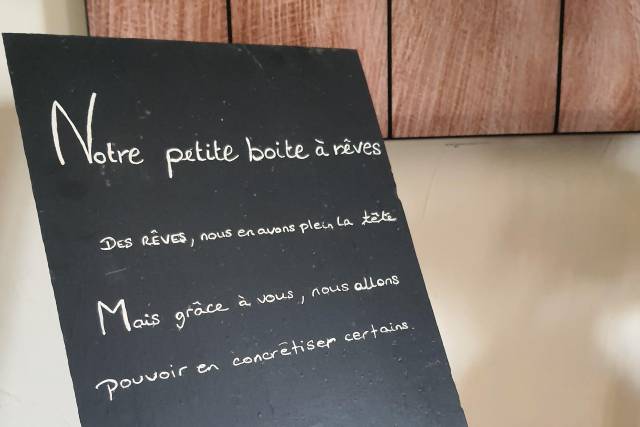 Notre petite boite à rêves
DES RÊVES, nous en avons plein la tête
Mais grâce à vous, nous allons
pouvoir en concrétiser certains.